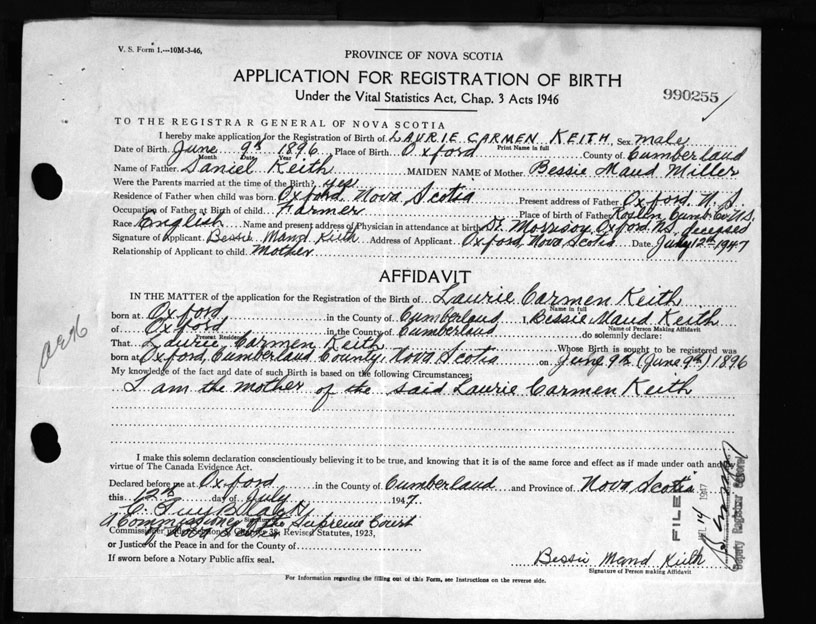 V. S. Form 1.—10M-3-46,
PROVINCE OF NOVA SCOTIA
APPLICATION FOR REGISTRATION OF BIRTH
Under the Vital Statistics Act, Chap. 3 Acts 1946
990255
TO THE REGISTRAR GENERAL OF NOVA SCOTIA
I hereby make application for the Registration of Birth of LAURIE CARMEN KEITH, Sex male
Print Name in full
Date of Birth June 9th 1896 Place of Birth Oxford County of Cumberland
Month Date Year
Name of Father Daniel Keith MAIDEN NAME of Mother Bessie Maud Miller
Were the Parents married at the time of the Birth? yes
Residence of Father when child was born Oxford, Nova Scotia Present address of Father Oxford N. S.
Occupation of Father at Birth of child Farmer Place of birth of Father Cumb. Co. N.S.
Race English Name and present address of Physician in attendance at birth Dr. Morrison, Oxford N.S. deceased
Signature of Applicant Bessie Maud Keith Address of Applicant Oxford, Nova Scotia Date July 12th 1947
Relationship of Applicant to child Mother
AFFIDAVIT
IN THE MATTER of the application for the Registration of the Birth of Laurie Carmen Keith
Name in full
born at Oxford in the County of Cumberland I, Bessie Maud Keith
Name of Person Making Affidavit
of Oxford in the County of Cumberland do solemnly declare:
Present Residence
That Laurie Carmen Keith Whose Birth is sought to be registered was
born at Oxford, Cumberland County, Nova Scotia on June 9th (June 9th) 1896
My knowledge of the fact and date of such Birth is based on the following Circumstances:
I am the mother of the said Laurie Carmen Keith
I make this solemn declaration conscientiously believing it to be true, and knowing that it is of the same force and effect as if made under oath and the
virtue of The Canada Evidence Act.
Declared before me at Oxford in the County of Cumberland and Province of Nova Scotia
this 12th day of July 1947.
A Commissioner of the Supreme Court
of Nova Scotia
Commissioner 38, Revised Statutes, 1923,
or Justice of the Peace in and for the County of
If sworn before a Notary Public affix seal.
FILED
14 1947
Deputy Registrar General
Bessie Maud Keith
Signature of Person making Affidavit
For Information regarding the filling out of this Form, see Instructions on the reverse side.